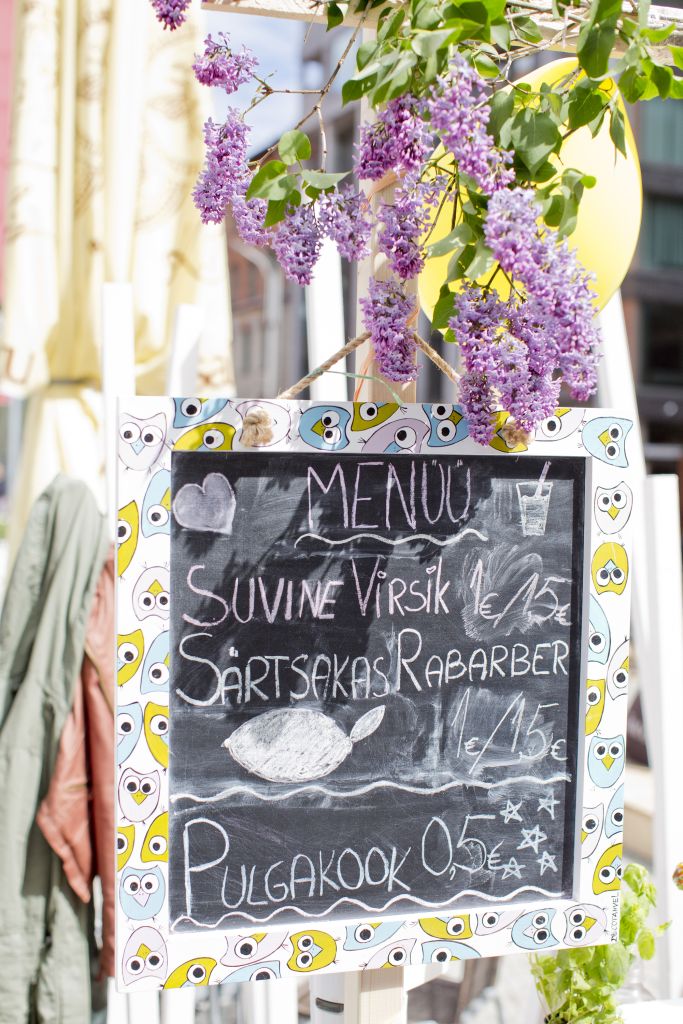 MENÜÜ
SUVINE VIRSIK 1€/1,5€
SÄRTSAKAS RABARBER
1€/1,5€
PULGAKOOK 0,5€